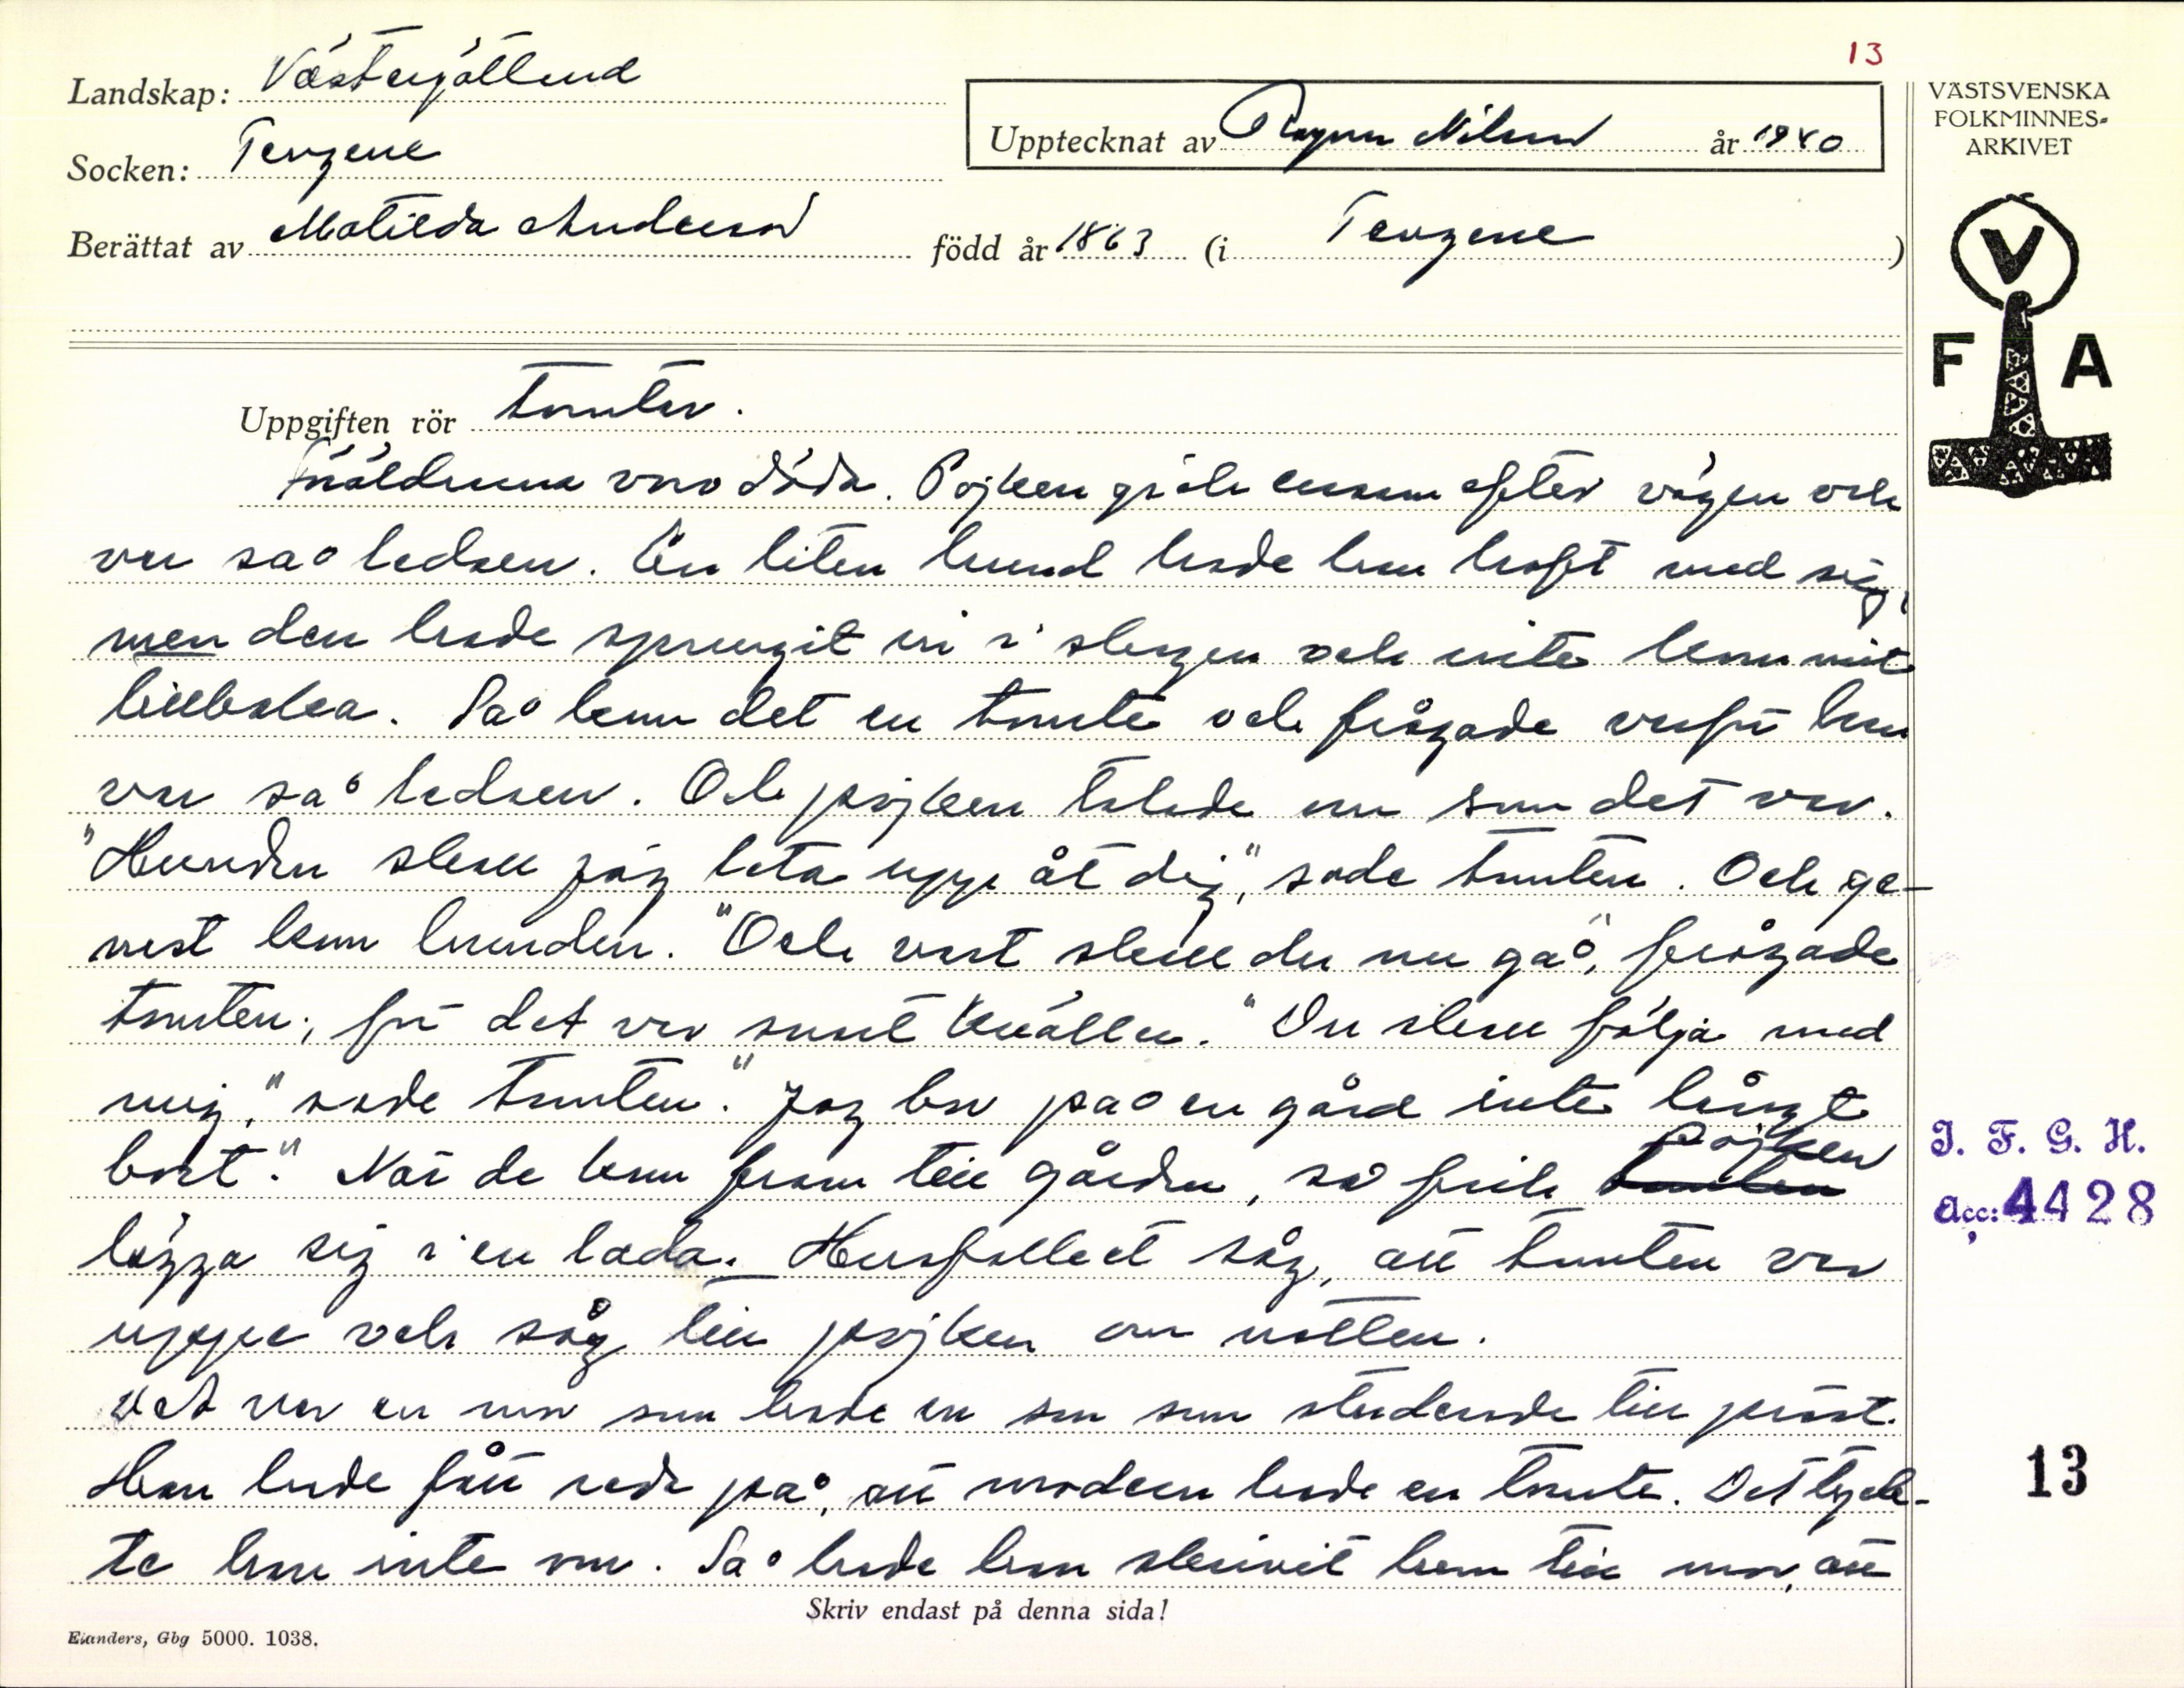 13
Landskap: Västergötland
Socken: Tengene
Upptecknat av Ragnar Nilsson år 1940
Berättat av Matilda Andersson född år 1863 (i Tengene )
VÄSTSVENSKA
FOLKMINNES-
ARKIVET
V
F A
Uppgiften rör tomtar.
Föräldrarna voro döda. Pojken gick ensam efter vägen och
var så ledsen. En liten hund hade han haft med sig,
men den hade sprungit in i skogen och inte kommit
tillbaka. Så kom det en tomte och frågade varför han
var så ledsen. Och pojken talade om som det var.
"Hunden skall jag leta upp åt dig," sade tomten. Och ge-
nast kom hunden. "Och vart skall du nu gå", frågade
tomten, för det var snart kvällen. "Du skall följa med
mig," sade tomten. "Jag bor på en gård inte långt
bort." När de kom fram till gården, så fick tomten pojken
lägga sig i en lada. Husfolket såg, att tomten var
uppe och såg till pojken om natten.
Det var en mor som hade en son som studerade till präst.
Han hade fått reda på, att modern hade en tomte. Det tyck-
te han inte om. Så hade han skrivit hem till mor, att
Skriv endast på denna sida!
Elanders, Gbg 5000. 1038.
I. F. G. H.
Acc: 4428
13